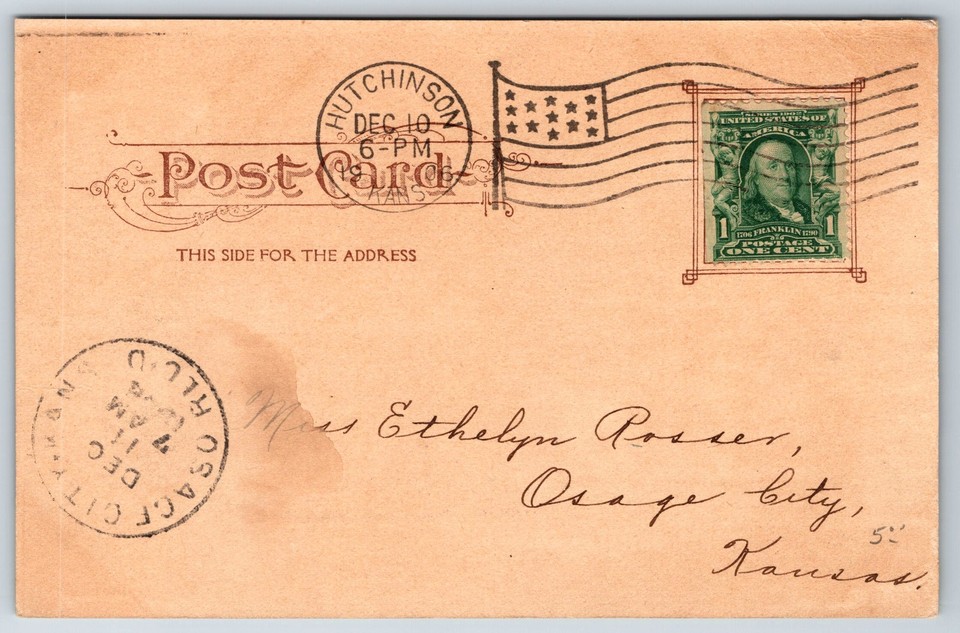 HUTCHINSON
DEC 10
6-PM
1906
KANS
Post Card
THIS SIDE FOR THE ADDRESS
SERIES 1902
UNITED STATES OF
AMERICA
1706 FRANKLIN 1790
1 1
POSTAGE
ONE CENT
OSAGE CITY, KANS
REC'D
DEC
11
7 AM
Miss Ethelyn Rosser,
Osage City,
Kansas.